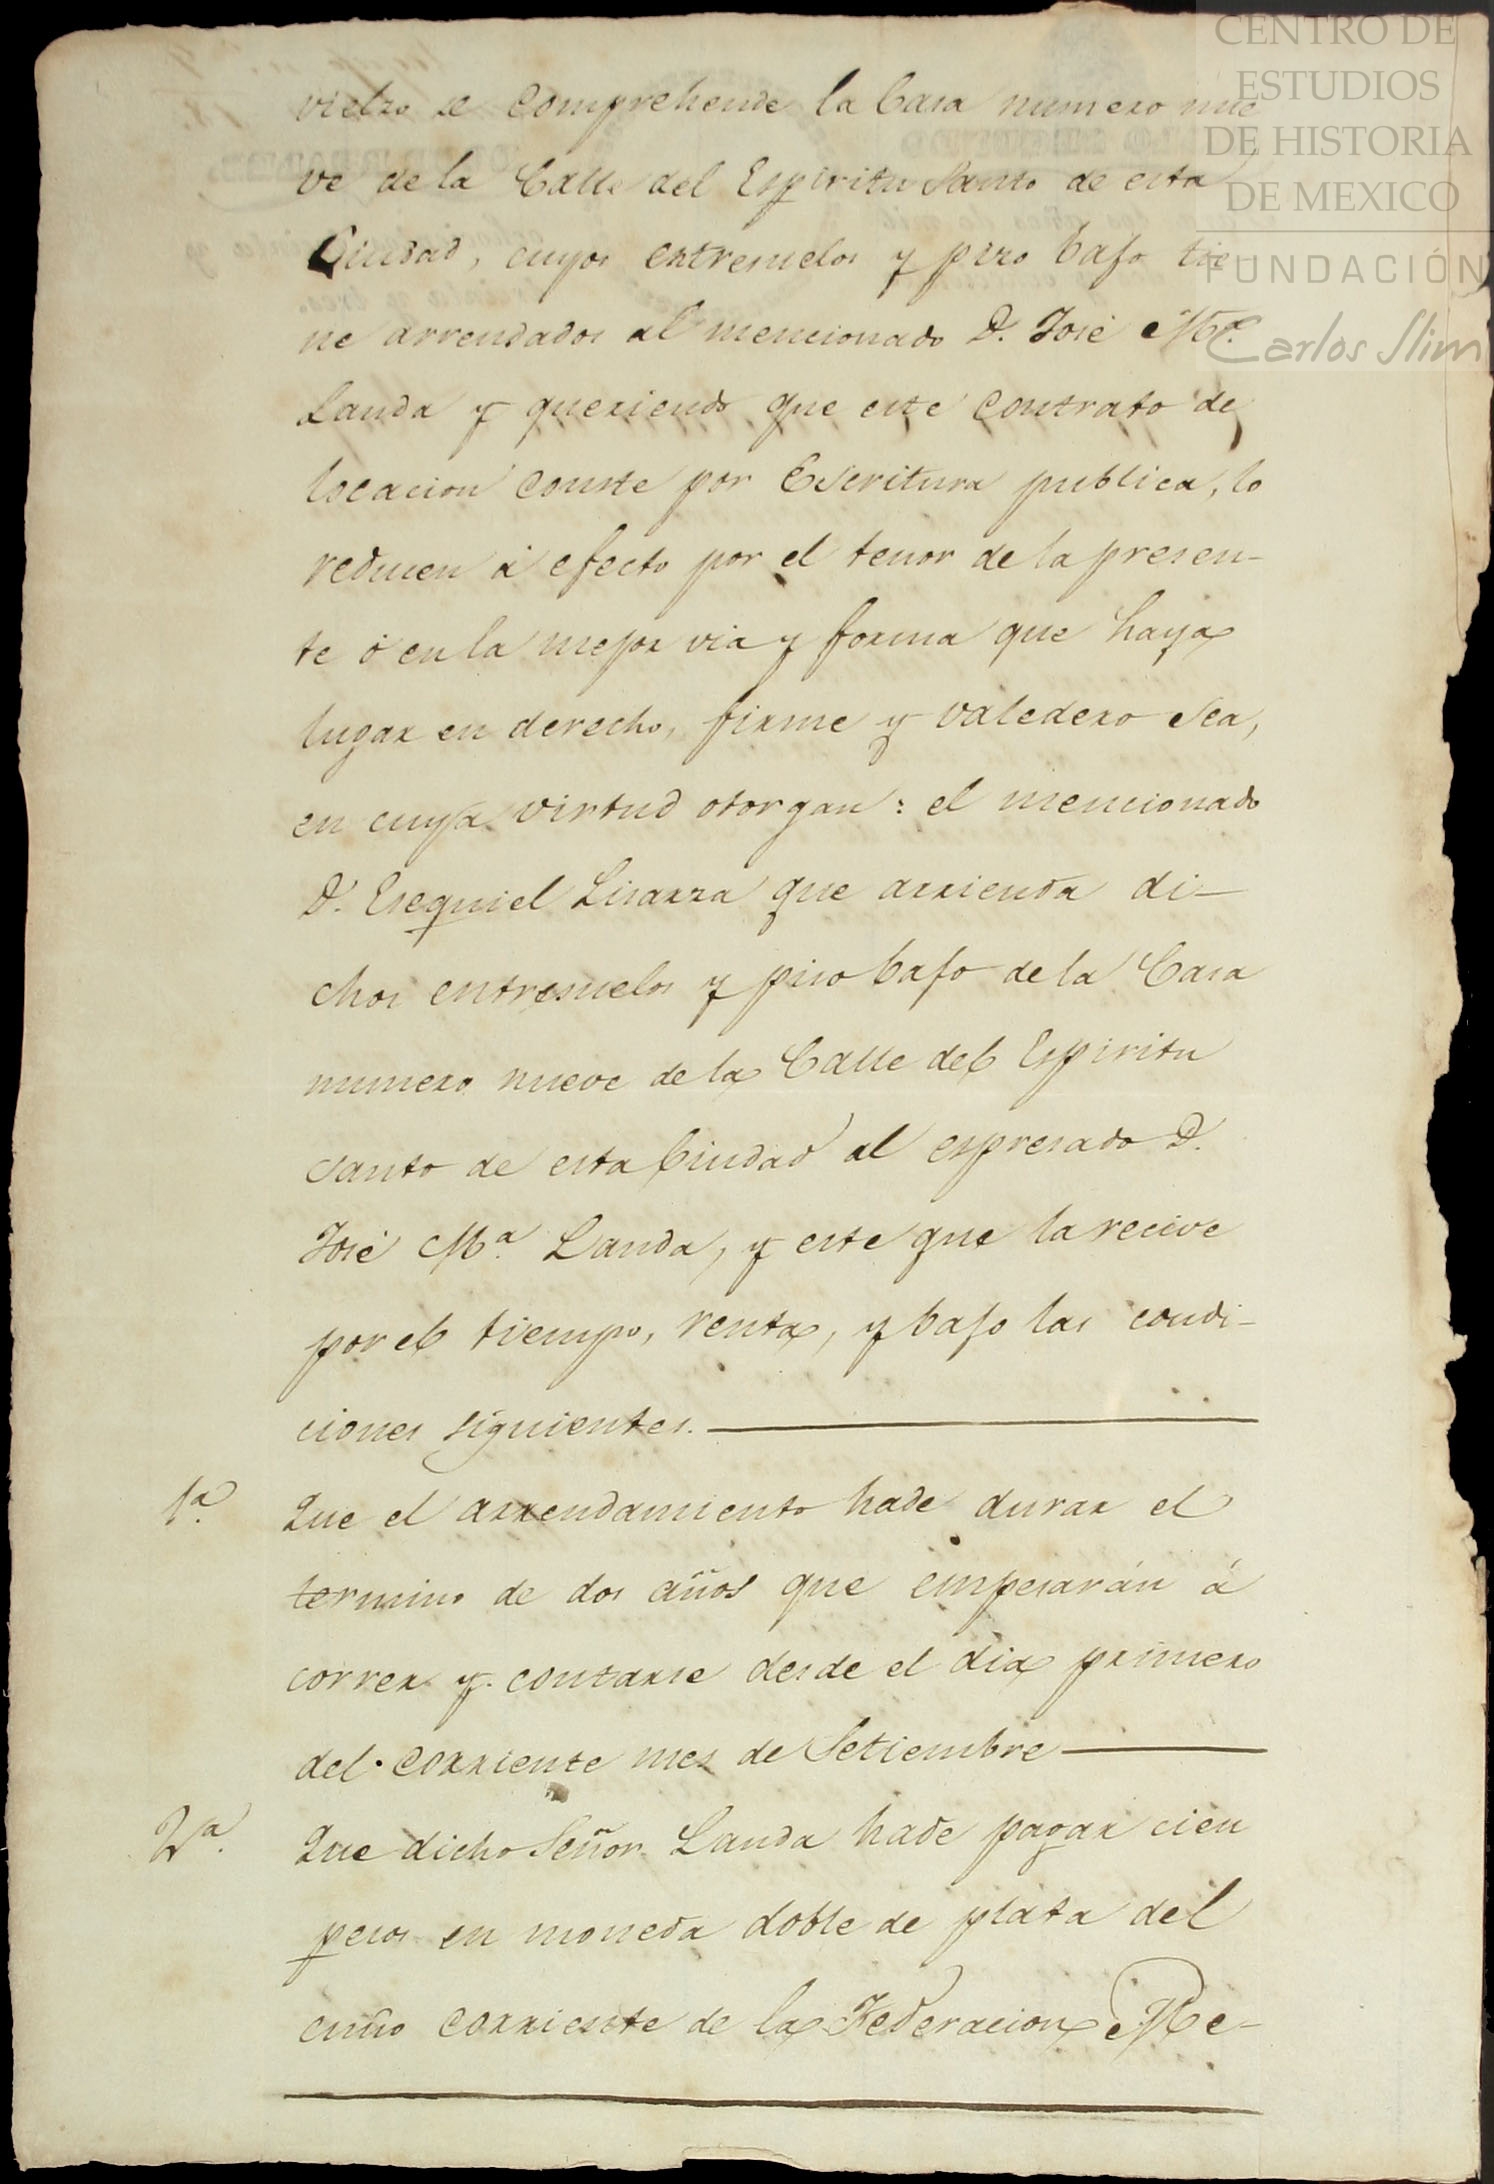 CENTRO DE
ESTUDIOS
DE HISTORIA
DE MEXICO
FUNDACIÓN
Carlos Slim
se comprehende la Casa numero nue
ve de la Calle del Espiritu Santo de esta
Ciudad, cuyos entresuelos y pizo bajo tie
ne arrendados al mencionado D. José Mª.
Landa y queriendo que este contrato de
locacion conste por Escritura publica, lo
reducen á efecto por el tenor de la presen-
te ó en la mejor via y forma que haya
lugar en derecho, firme y valedero sea,
en cuya virtud otorgan: el mencionado
D. Esequiel Lisarza que arrienda di-
chos entresuelos y piso bajo de la Casa
numero nueve de la Calle del Espiritu
Santo de esta Ciudad al espresado D.
José Mª. Landa, y este que la recive
por el tiempo, renta, y bajo las condi-
ciones siguientes.
1ª. Que el arrendamiento hade durar el
termino de dos años que empesarán á
correr y contarse desde el dia primero
del corriente mes de Setiembre
2ª. Que dicho Señor Landa hade pagar cien
pesos en moneda doble de plata del
cuño corriente de la Federacion Me-